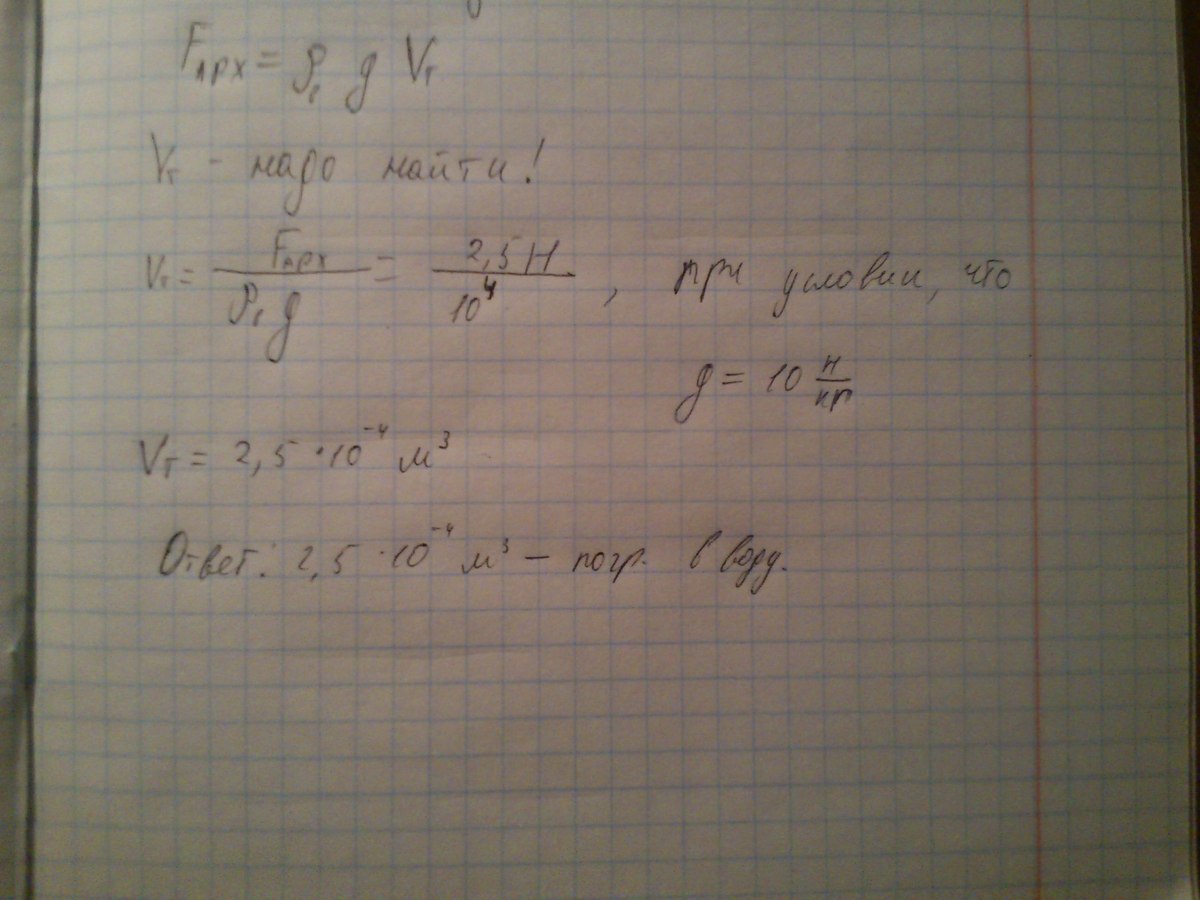 Fарх = ρ₁ g Vт
Vт - надо найти!
Vт = Fарх / ρ₁ g = 2,5 Н / 10⁴ , при условии, что
g = 10 Н/кг
Vт = 2,5 · 10⁻⁴ м³
Ответ: 2,5 · 10⁻⁴ м³ — погр. в воду.